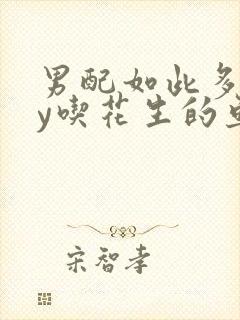 男配如此多
y喫花生的
宋智孝